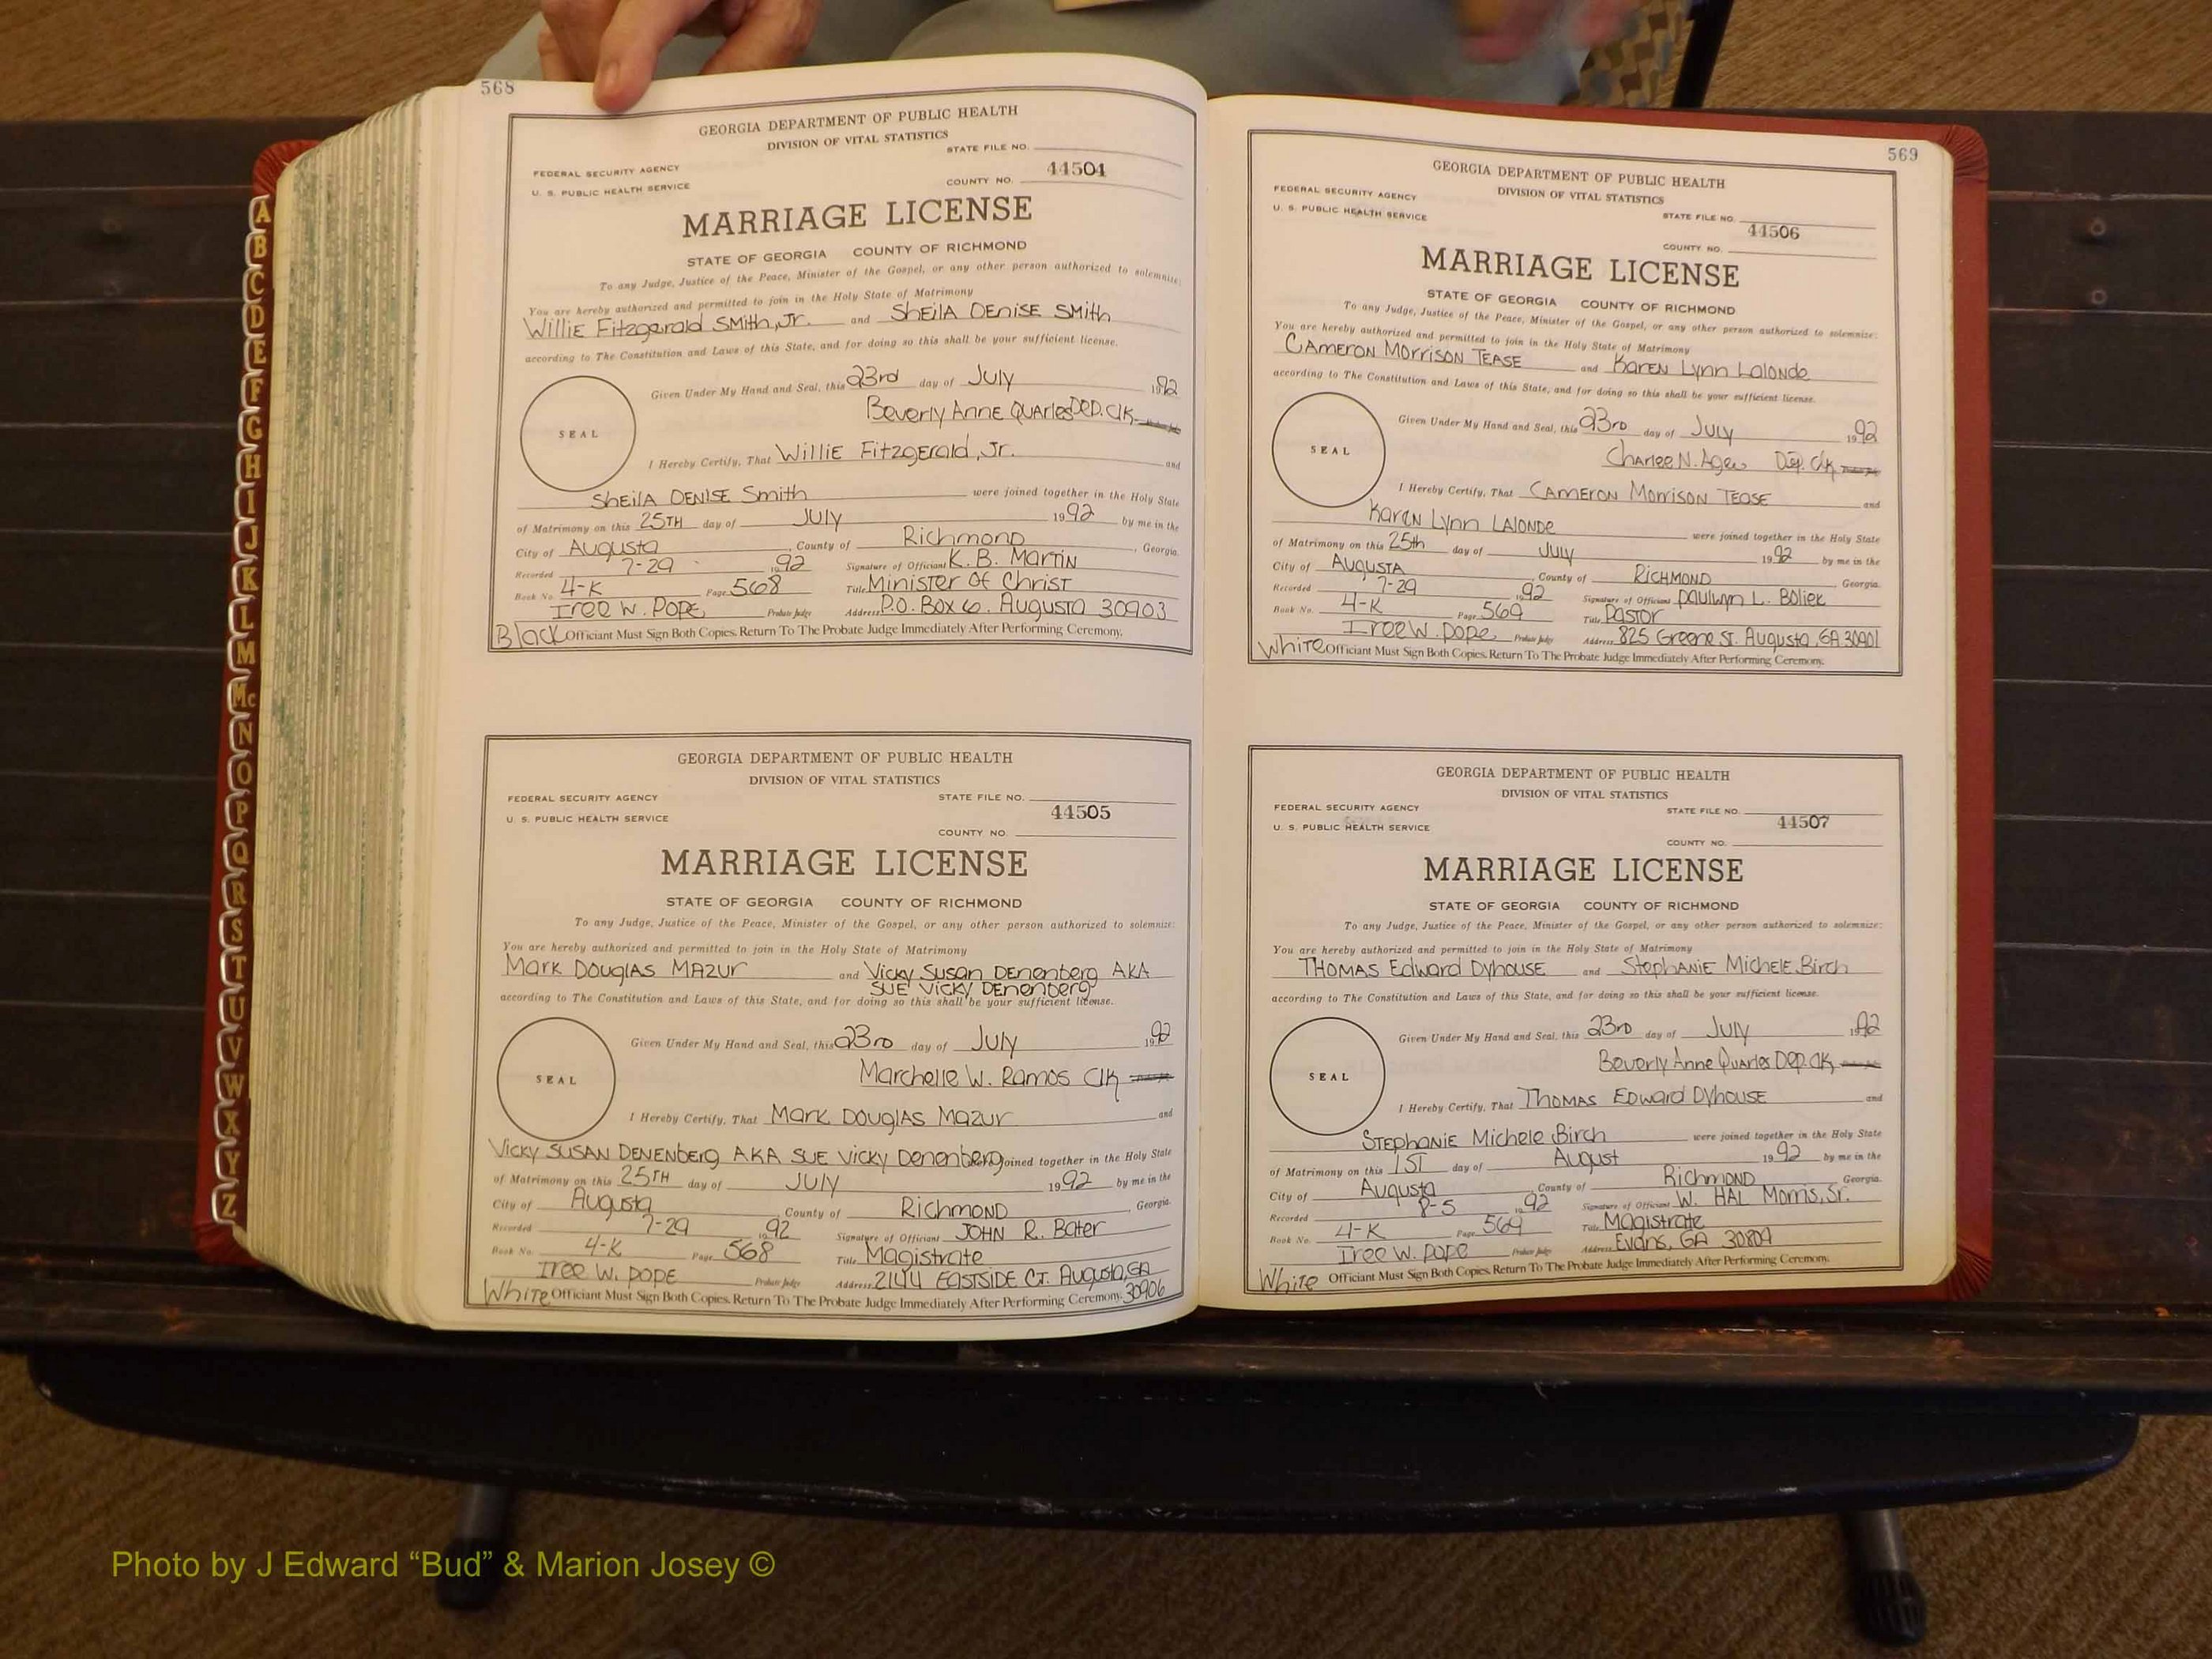 568
GEORGIA DEPARTMENT OF PUBLIC HEALTH
DIVISION OF VITAL STATISTICS
STATE FILE NO.
FEDERAL SECURITY AGENCY
44504
U. S. PUBLIC HEALTH SERVICE
COUNTY NO.
MARRIAGE LICENSE
STATE OF GEORGIA COUNTY OF RICHMOND
To any Judge, Justice of the Peace, Minister of the Gospel, or any other person authorized to solemnize:
You are hereby authorized and permitted to join in the Holy State of Matrimony
Willie Fitzgerald Smith, Jr. and Sheila Denise Smith
according to The Constitution and Laws of this State, and for doing so this shall be your sufficient license.
Given Under My Hand and Seal, this 23rd day of July 1992
Beverly Anne Quarles Dep. Clk.
SEAL
I Hereby Certify, That Willie Fitzgerald, Jr. and
Sheila Denise Smith were joined together in the Holy State
of Matrimony on this 25TH day of July 1992 by me in the
City of Augusta, County of Richmond, Georgia.
Recorded 7-29 1992 Signature of Officiant K. B. Martin
Book No. 4-K Page 568 Title Minister Of Christ
Iree W. Pope Probate Judge Address P.O. Box 6. Augusta 30903
Black Officiant Must Sign Both Copies. Return To The Probate Judge Immediately After Performing Ceremony.
GEORGIA DEPARTMENT OF PUBLIC HEALTH
DIVISION OF VITAL STATISTICS
FEDERAL SECURITY AGENCY STATE FILE NO.
44505
U. S. PUBLIC HEALTH SERVICE
COUNTY NO.
MARRIAGE LICENSE
STATE OF GEORGIA COUNTY OF RICHMOND
To any Judge, Justice of the Peace, Minister of the Gospel, or any other person authorized to solemnize:
You are hereby authorized and permitted to join in the Holy State of Matrimony
Mark Douglas Mazur and Vicky Susan Denenberg AKA
Sue Vicky Denenberg
according to The Constitution and Laws of this State, and for doing so this shall be your sufficient license.
Given Under My Hand and Seal, this 23rd day of July 1992
Marchelle W. Ramos Clk
SEAL
I Hereby Certify, That Mark Douglas Mazur and
Vicky Susan Denenberg AKA Sue Vicky Denenberg were joined together in the Holy State
of Matrimony on this 25TH day of July 1992 by me in the
City of Augusta, County of Richmond, Georgia.
Recorded 7-29 1992 Signature of Officiant John R. Bater
Book No. 4-K Page 568 Title Magistrate
Iree W. Pope Probate Judge Address 2144 Eastside Ct. Augusta, GA
White Officiant Must Sign Both Copies. Return To The Probate Judge Immediately After Performing Ceremony. 30906
569
GEORGIA DEPARTMENT OF PUBLIC HEALTH
DIVISION OF VITAL STATISTICS
FEDERAL SECURITY AGENCY
STATE FILE NO.
U. S. PUBLIC HEALTH SERVICE
44506
COUNTY NO.
MARRIAGE LICENSE
STATE OF GEORGIA COUNTY OF RICHMOND
To any Judge, Justice of the Peace, Minister of the Gospel, or any other person authorized to solemnize:
You are hereby authorized and permitted to join in the Holy State of Matrimony
Cameron Morrison Tease and Karen Lynn Lalonde
according to The Constitution and Laws of this State, and for doing so this shall be your sufficient license.
Given Under My Hand and Seal, this 23rd day of July 1992
Charlee N. Dep. Clk
SEAL
I Hereby Certify, That Cameron Morrison Tease and
Karen Lynn Lalonde were joined together in the Holy State
of Matrimony on this 25th day of July 1992 by me in the
City of Augusta, County of Richmond, Georgia.
Recorded 7-29 1992 Signature of Officiant Paulwyn L. Boliek
Book No. 4-K Page 569 Title Pastor
Iree W. Pope Probate Judge Address 825 Greene St. Augusta, GA 30901
White Officiant Must Sign Both Copies. Return To The Probate Judge Immediately After Performing Ceremony.
GEORGIA DEPARTMENT OF PUBLIC HEALTH
DIVISION OF VITAL STATISTICS
FEDERAL SECURITY AGENCY STATE FILE NO.
U. S. PUBLIC HEALTH SERVICE 44507
COUNTY NO.
MARRIAGE LICENSE
STATE OF GEORGIA COUNTY OF RICHMOND
To any Judge, Justice of the Peace, Minister of the Gospel, or any other person authorized to solemnize:
You are hereby authorized and permitted to join in the Holy State of Matrimony
Thomas Edward Dyhouse and Stephanie Michele Birch
according to The Constitution and Laws of this State, and for doing so this shall be your sufficient license.
Given Under My Hand and Seal, this 23rd day of July 1992
Beverly Anne Quarles Dep. Clk.
SEAL
I Hereby Certify, That Thomas Edward Dyhouse and
Stephanie Michele Birch were joined together in the Holy State
of Matrimony on this 1ST day of August 1992 by me in the
City of Augusta, County of Richmond Georgia.
Recorded 8-5 1992 Signature of Officiant W. Hal Morris, Sr.
Book No. 4-K Page 569 Title Magistrate
Iree W. Pope Probate Judge Address Evans, GA 30809
White Officiant Must Sign Both Copies. Return To The Probate Judge Immediately After Performing Ceremony.
A
B
C
D
E
F
G
H
I
J
K
L
M
Mc
N
O
P
Q
R
S
T
U
V
W
X
Y
Z
Photo by J Edward “Bud” & Marion Josey ©